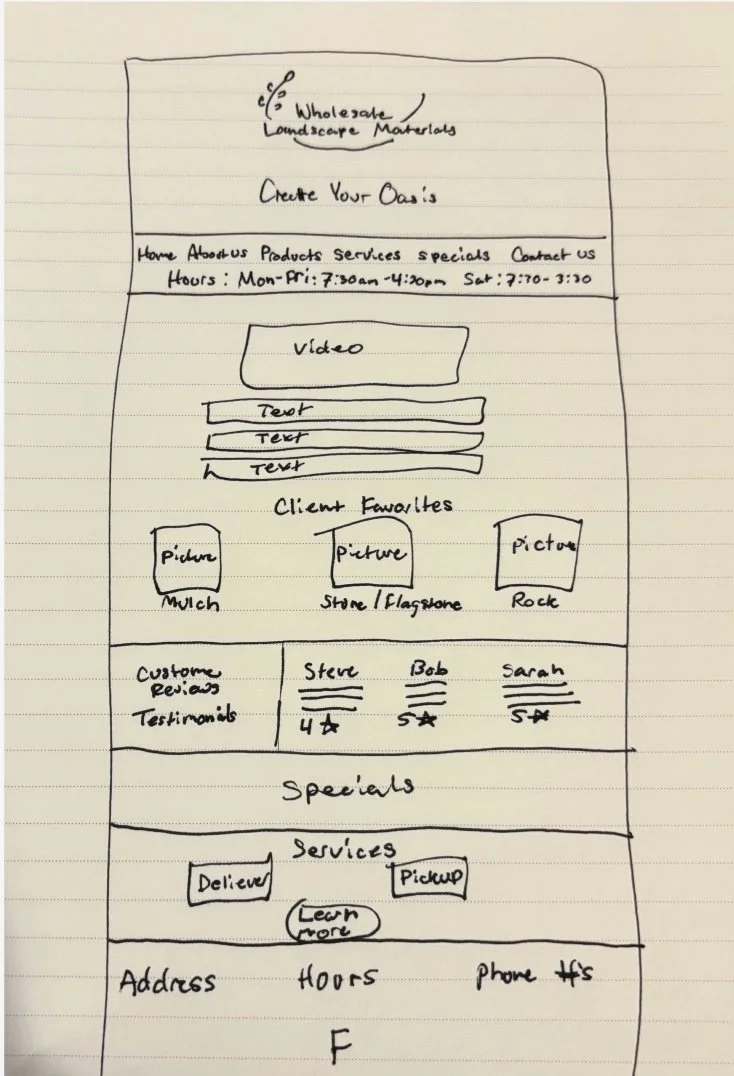 Wholesale
Landscape Materials
Create Your Oasis
Home About us Products Services specials Contact us
Hours : Mon-Fri: 7:30am-4:30pm Sat: 7:30-3:30
Video
Text
Text
Text
Client Favorites
Picture Picture Picture
Mulch Stone/Flagstone Rock
Custome Reviews
Testimonials
Steve Bob Sarah
4☆ 5☆ 5☆
Specials
Services
Deliever Pickup
Learn
more
Address Hours Phone #'s
F